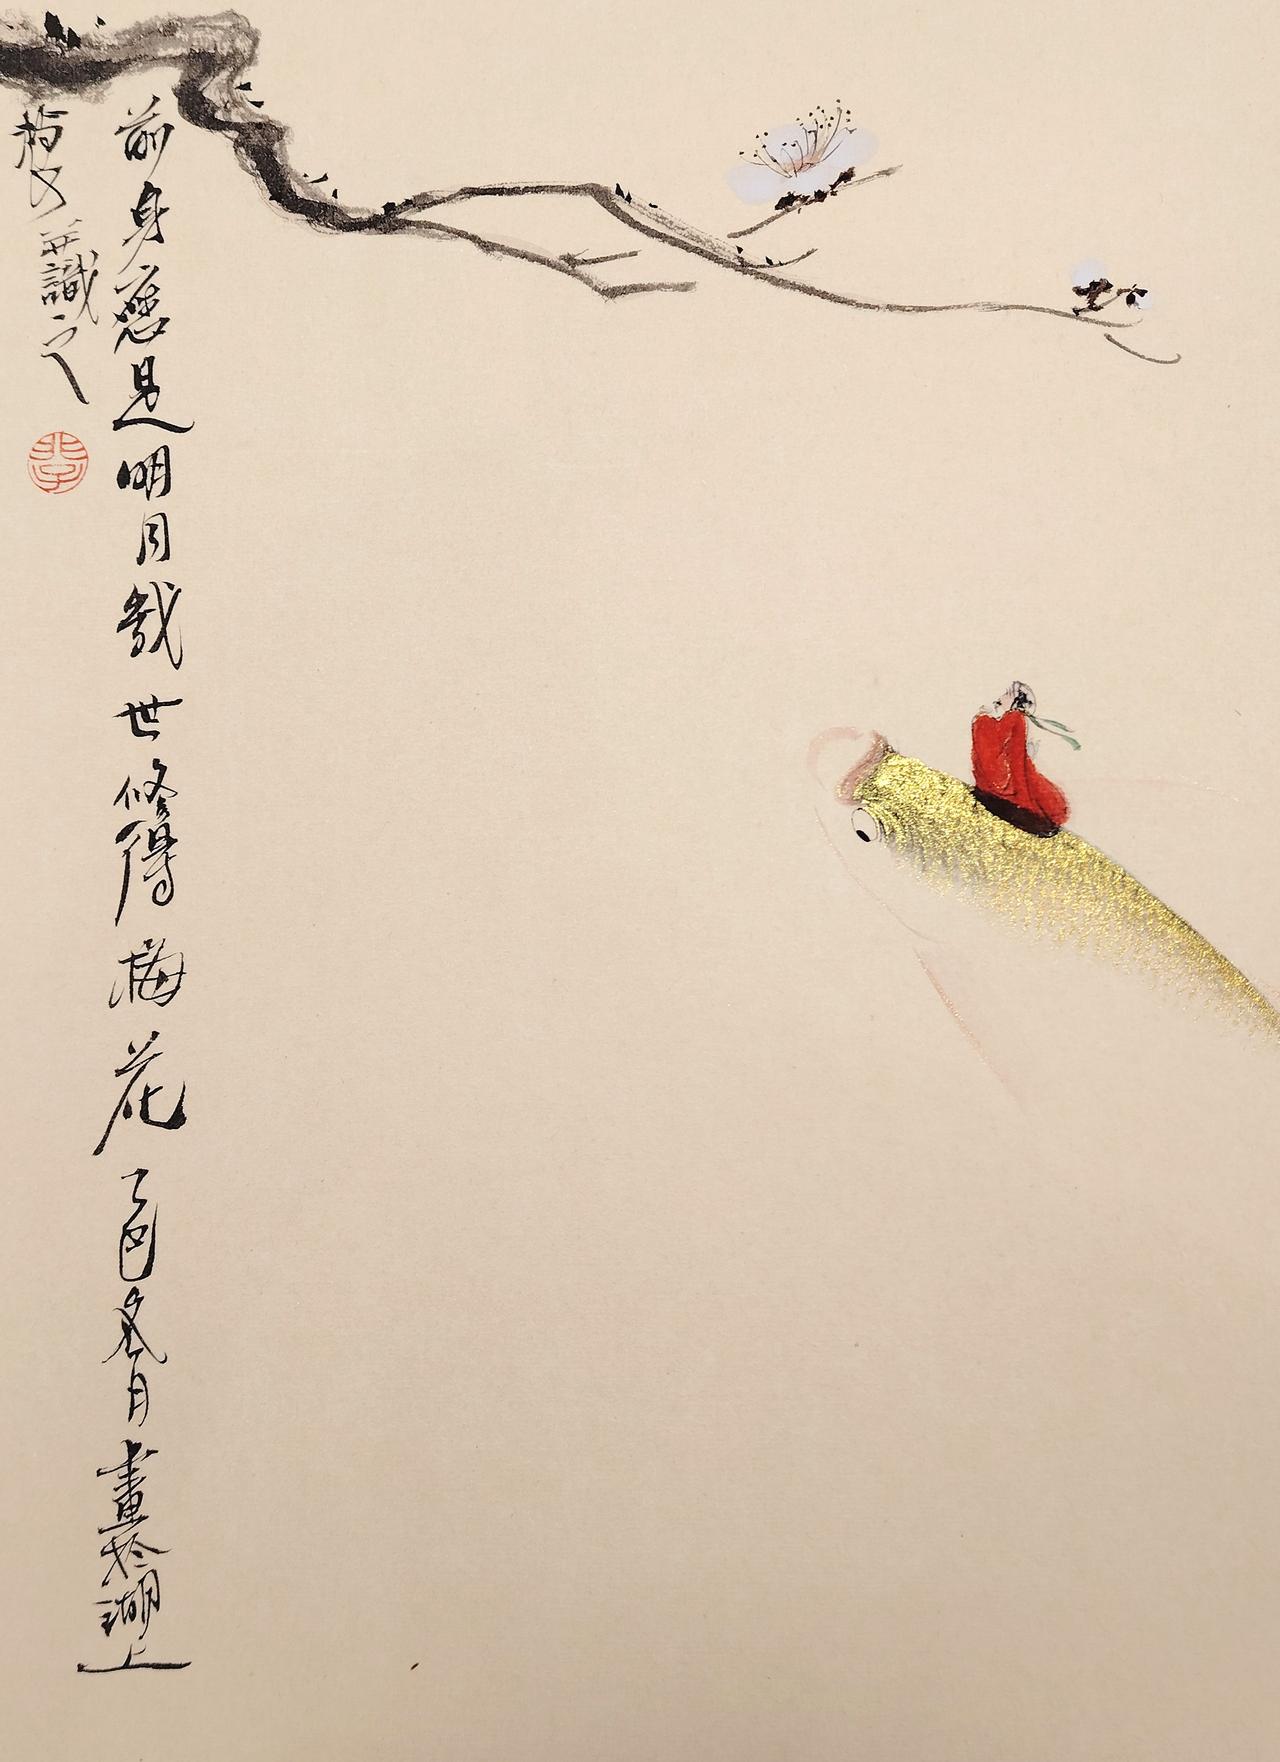 前身應是明月幾世修得梅花乙巳冬月畫於湖上
并識之
非子